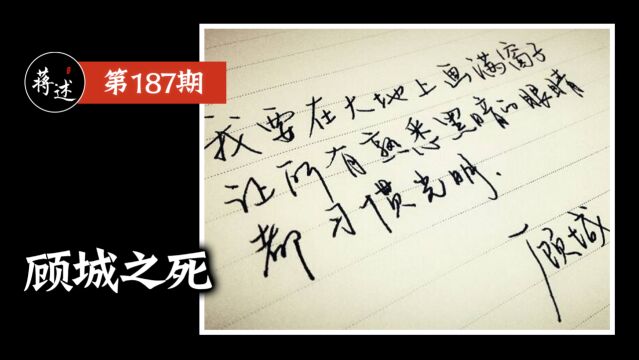 蒋述
第187期
顾城之死
我要在大地上画满窗子
让所有熟悉黑暗的眼睛
都习惯光明.
顾城